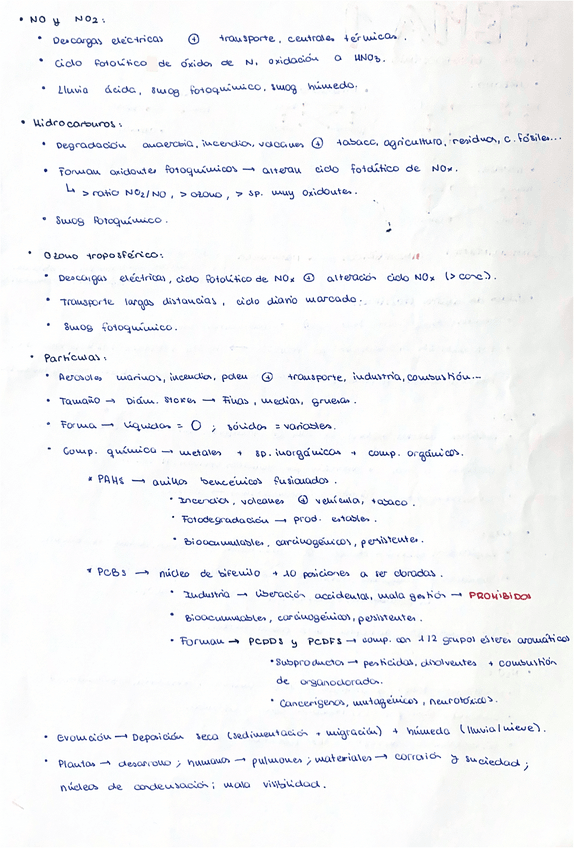 • NO y NO2:
• Descargas eléctricas ⊕ transporte, centrales térmicas.
• Ciclo fotolítico de óxidos de N, oxidación a HNO3.
• Lluvia ácida, smog fotoquímico, smog húmedo.
• Hidrocarburos:
• Degradación anaerobia, incendios, volcanes ⊕ tabaco, agricultura, residuos, c. fósiles...
• Forman oxidantes fotoquímicos → alteran ciclo fotolítico de NOx.
↳ > ratio NO2/NO, > ozono, > sp. muy oxidantes.
• Smog fotoquímico.
• Ozono troposférico:
• Descargas eléctricas, ciclo fotolítico de NOx ⊕ alteración ciclo NOx (> conc).
• Transporte largas distancias, ciclo diario marcado.
• Smog fotoquímico.
• Partículas:
• Aerosoles marinos, incendios, polen ⊕ transporte, industria, combustión...
• Tamaño → Diám. Stokes → Finas, medias, gruesas.
• Forma → Líquidas = O ; sólidos = variables.
• Comp. química → metales + sp. inorgánicas + comp. orgánicos.
* PAHs → anillos bencénicos fusionados.
• Incendios, volcanes ⊕ vehículo, tabaco.
• Fotodegradación → prod. estables.
• Bioacumulables, carcinogénicos, persistentes.
* PCBs → núcleo de bifenilo + 10 posiciones a ser cloradas.
• Industria → liberación accidental, mala gestión → PROHIBIDOS
• Bioacumulables, carcinogénicos, persistentes.
• Forman → PCDDs y PCDFs → comp. con 1/2 grupos esteres aromáticos
• Subproductos → pesticidas, disolventes + combustión
de organoclorados.
• Cancerígenos, mutagénicos, neurotóxicos.
• Evolución → Deposición seca (sedimentación + migración) + húmeda (lluvia/nieve).
• Plantas → desarrollo ; humanos → pulmones ; materiales → corrosión y suciedad ;
núcleos de condensación ; mala visibilidad.